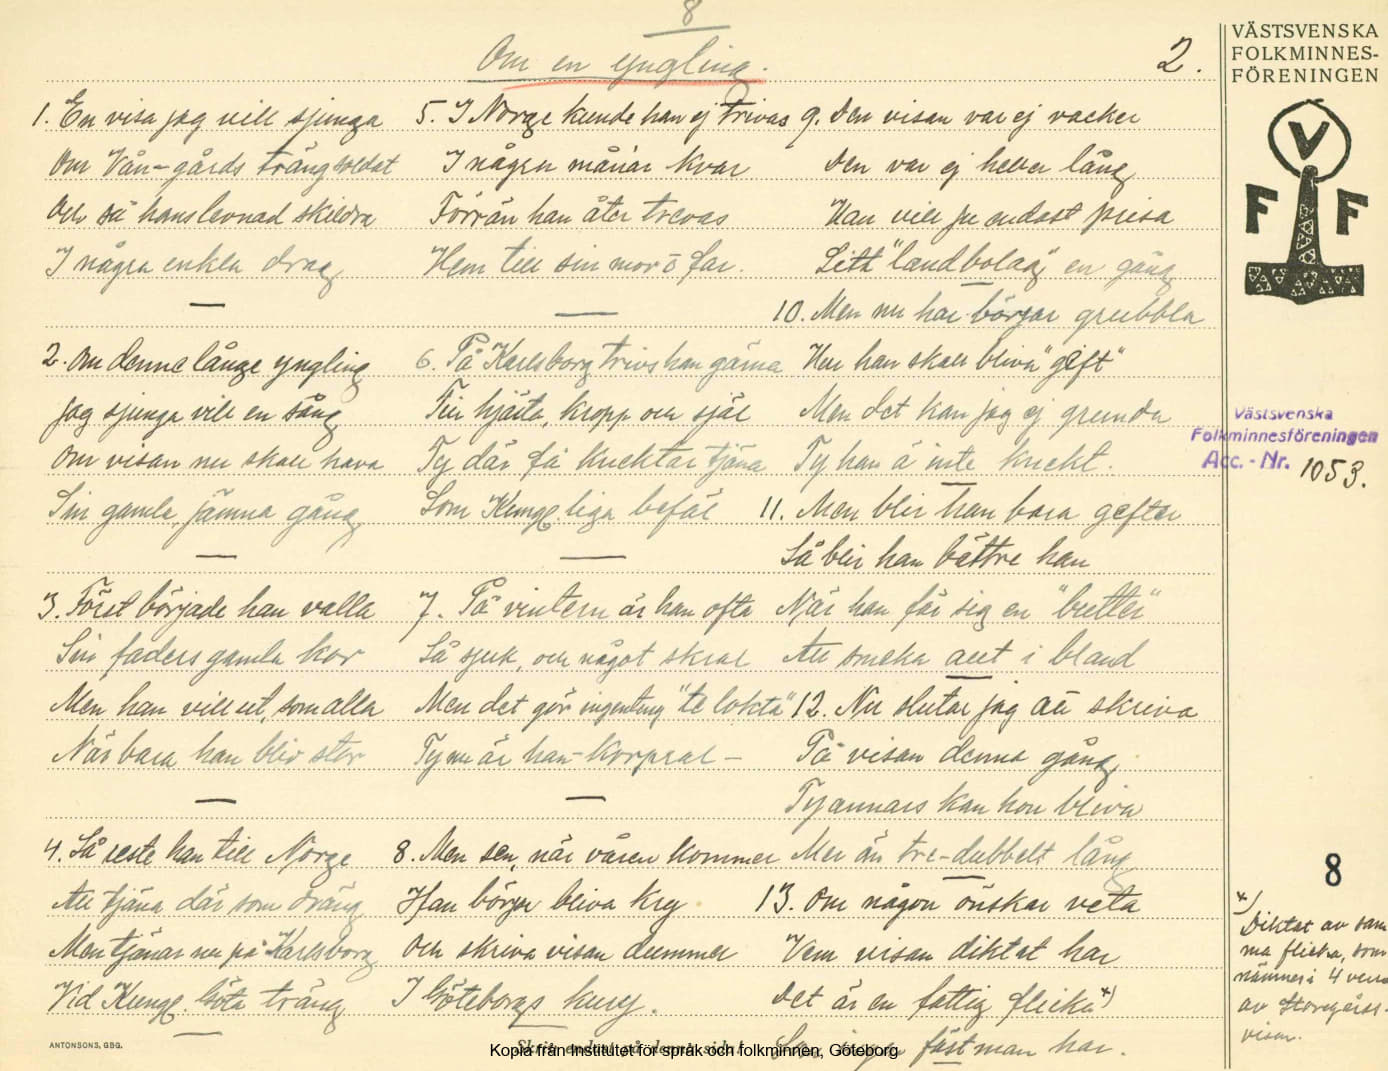 8
Om en yngling.
2.
1. En visa jag vill sjunga
Om Vån-gårds trängsoldat
Och så hans levnad skildra
I några enkla drag
2. Om denne långe yngling
jag sjunga vill en sång
Om visan nu skall hava
Sin gamla, jämna gång
3. Först började han valla
Sin faders gamla kor
Men han vill ut, som alla
När bara han bliv stor
4. Så reste han till Norge
Att tjäna där som dräng
Men tjänar nu på Karlsborg
Vid Kungl. Göta träng
5. I Norge kunde han ej trivas
I några månar kvar
Förrän han åter
Hem till sin mor o far.
6. På Karlsborg trivs han gärna
Till hjärta, kropp och själ
Ty där få knektar tjäna
Som Kungl.liga befäl
7. På vintern är han ofta
Så sjuk, och något skral
Men det gör ingenting "te lokta"
Ty nu är han - korpral -
8. Men sen, när våren kommer
Han börja bliva kry
Och skriva visan dummer
I Göteborgs kury.
9. Den visan var ej vacker
Den var ej heller lång
Han vill ju endast prisa
Sitt "landbolag" en gång
10. Men nu har börjar grubbla
Hur han skall bliva "gift"
Men det kan jag ej grunda
Ty han ä inte knekt.
11. Men blir han bara gefter
Så blir han bättre han
När han får sig en "butter"
Att smeka allt i bland
12. Nu slutar jag att skriva
På visan denna gång
Ty annars kan hon bliva
Mer än tre-dubbelt lång
13. Om någon önskar veta
Vem visan diktat har
Det är en fattig flicka x)
Som ingen fästman har.
VÄSTSVENSKA
FOLKMINNES-
FÖRENINGEN
V
F F
Västsvenska
Folkminnesföreningen
Acc.-Nr. 1053.
8
x)
Diktat av sam
ma flicka, som
nämnes i 4 vers
av
visan.
ANTONSONS, GBG.
Skriv endast på denna sida!
Kopia från Institutet för språk och folkminnen, Göteborg